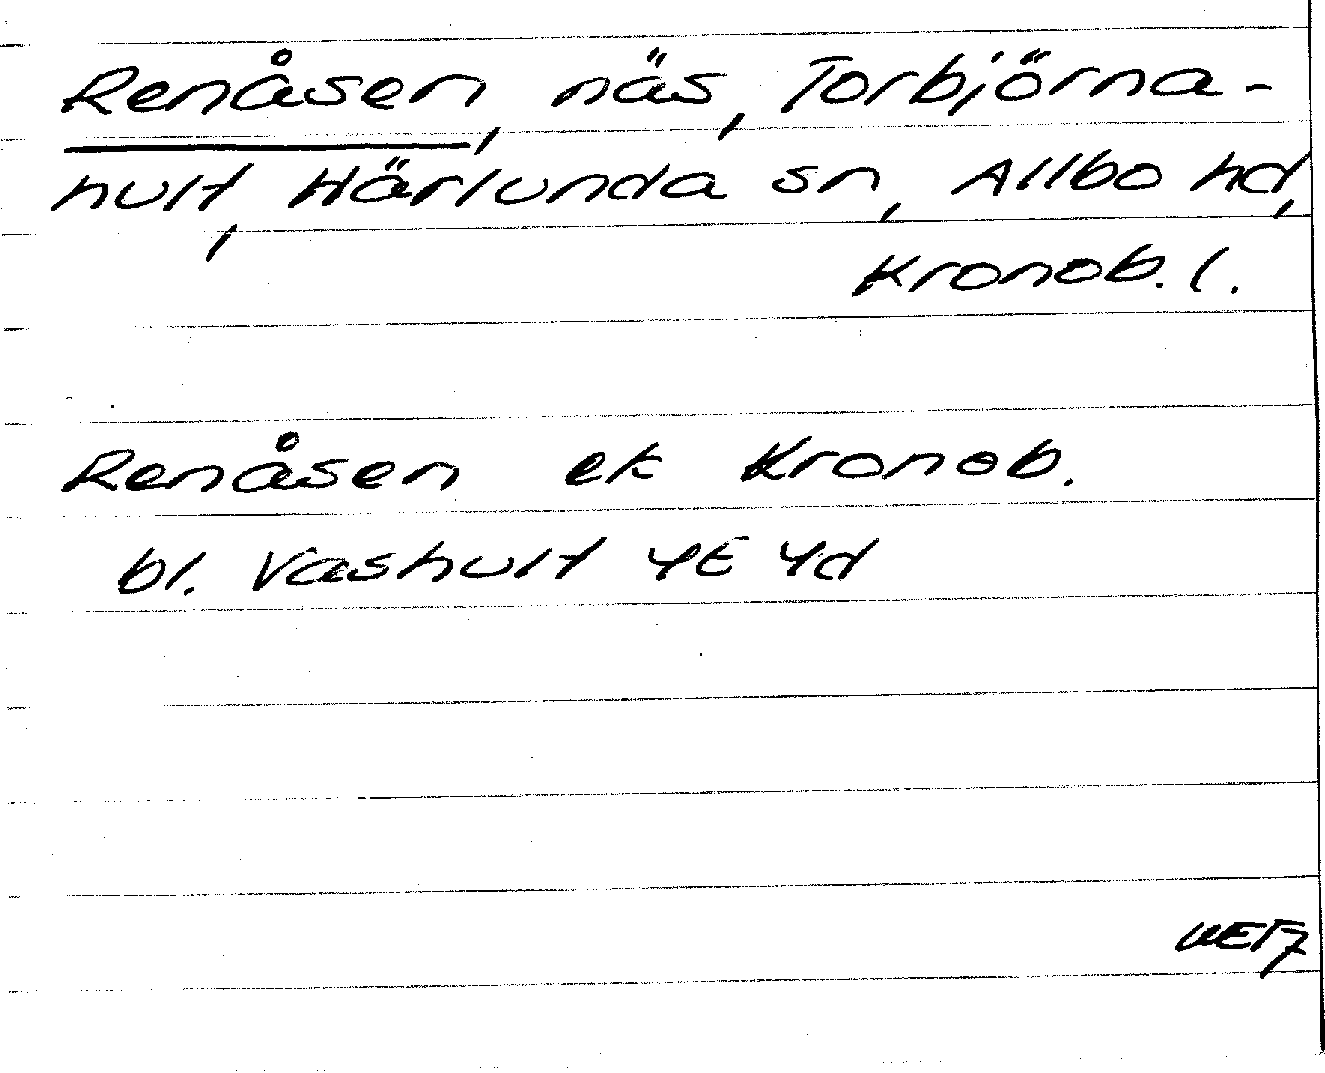 Renåsen, näs, Torbjörna-
hult, Härlunda sn, Allbo hd,
Kronob. l.
Renåsen ek Kronob.
bl. Vashult 4E 4d